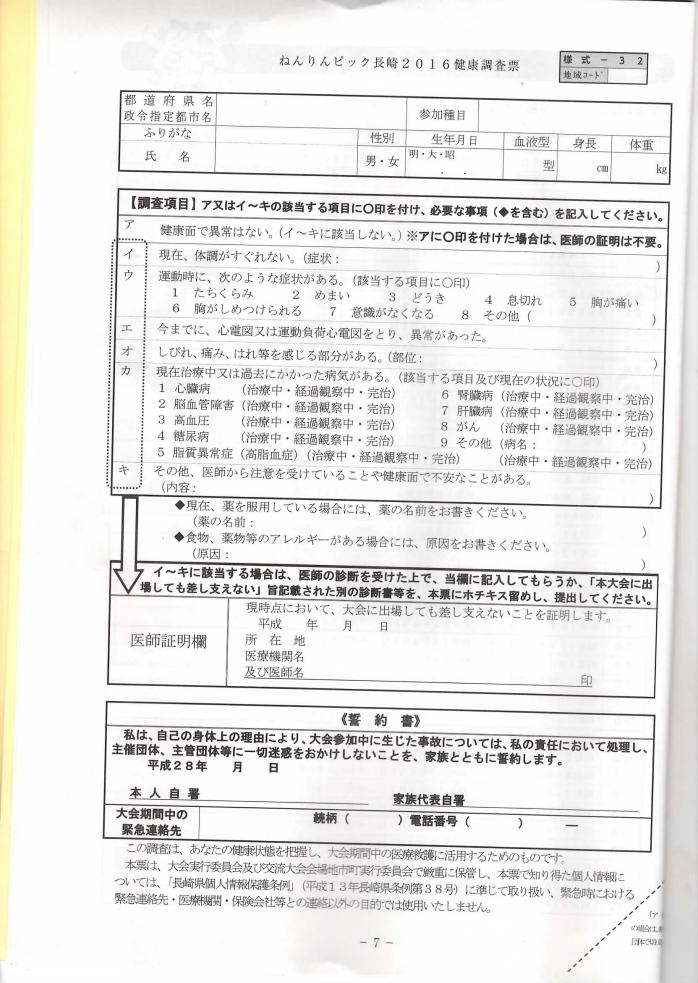 ねんりんピック長崎２０１６健康調査票
様式－３２
地域ｺｰﾄﾞ
都道府県名
政令指定都市名
参加種目
ふりがな
性別
生年月日
血液型
身長
体重
氏　名
男・女
明・大・昭
．　．
型
cm
kg
【調査項目】ア又はイ～キの該当する項目に○印を付け、必要な事項（◆を含む）を記入してください。
ア　健康面で異常はない。（イ～キに該当しない。）※アに○印を付けた場合は、医師の証明は不要。
イ　現在、体調がすぐれない。（症状：　）
ウ　運動時に、次のような症状がある。（該当する項目に○印）
１　たちくらみ　２　めまい　３　どうき　４　息切れ　５　胸が痛い
６　胸がしめつけられる　７　意識がなくなる　８　その他（　）
エ　今までに、心電図又は運動負荷心電図をとり、異常があった。
オ　しびれ、痛み、はれ等を感じる部分がある。（部位：　）
カ　現在治療中又は過去にかかった病気がある。（該当する項目及び現在の状況に○印）
１　心臓病　（治療中・経過観察中・完治）　６　腎臓病（治療中・経過観察中・完治）
２　脳血管障害（治療中・経過観察中・完治）　７　肝臓病（治療中・経過観察中・完治）
３　高血圧　（治療中・経過観察中・完治）　８　がん　（治療中・経過観察中・完治）
４　糖尿病　（治療中・経過観察中・完治）　９　その他（病名：　）
５　脂質異常症（高脂血症）（治療中・経過観察中・完治）　（治療中・経過観察中・完治）
キ　その他、医師から注意を受けていることや健康面で不安なことがある。
（内容：　）
◆現在、薬を服用している場合には、薬の名前をお書きください。
（薬の名前：　）
◆食物、薬物等のアレルギーがある場合には、原因をお書きください。
（原因：　）
イ～キに該当する場合は、医師の診断を受けた上で、当欄に記入してもらうか、「本大会に出
場しても差し支えない」旨記載された別の診断書等を、本票にホチキス留めし、提出してください。
医師証明欄
現時点において、大会に出場しても差し支えないことを証明します。
平成　年　月　日
所在地
医療機関名
及び医師名　印
《誓約書》
私は、自己の身体上の理由により、大会参加中に生じた事故については、私の責任において処理し、
主催団体、主管団体等に一切迷惑をおかけしないことを、家族とともに誓約します。
平成２８年　月　日
本人自署　家族代表自署
大会期間中の
緊急連絡先
続柄（　）電話番号（　）　―
この調査は、あなたの健康状態を把握し、大会期間中の医療救護に活用するためのものです。
本票は、大会実行委員会及び交流大会会場地市町実行委員会で厳重に保管し、本票で知り得た個人情報に
ついては、「長崎県個人情報保護条例」（平成１３年長崎県条例第３８号）に準じて取り扱い、緊急時における
緊急連絡先・医療機関・保険会社等との連絡以外の目的では使用いたしません。
－７－
「ア
の場合は、
団体で切